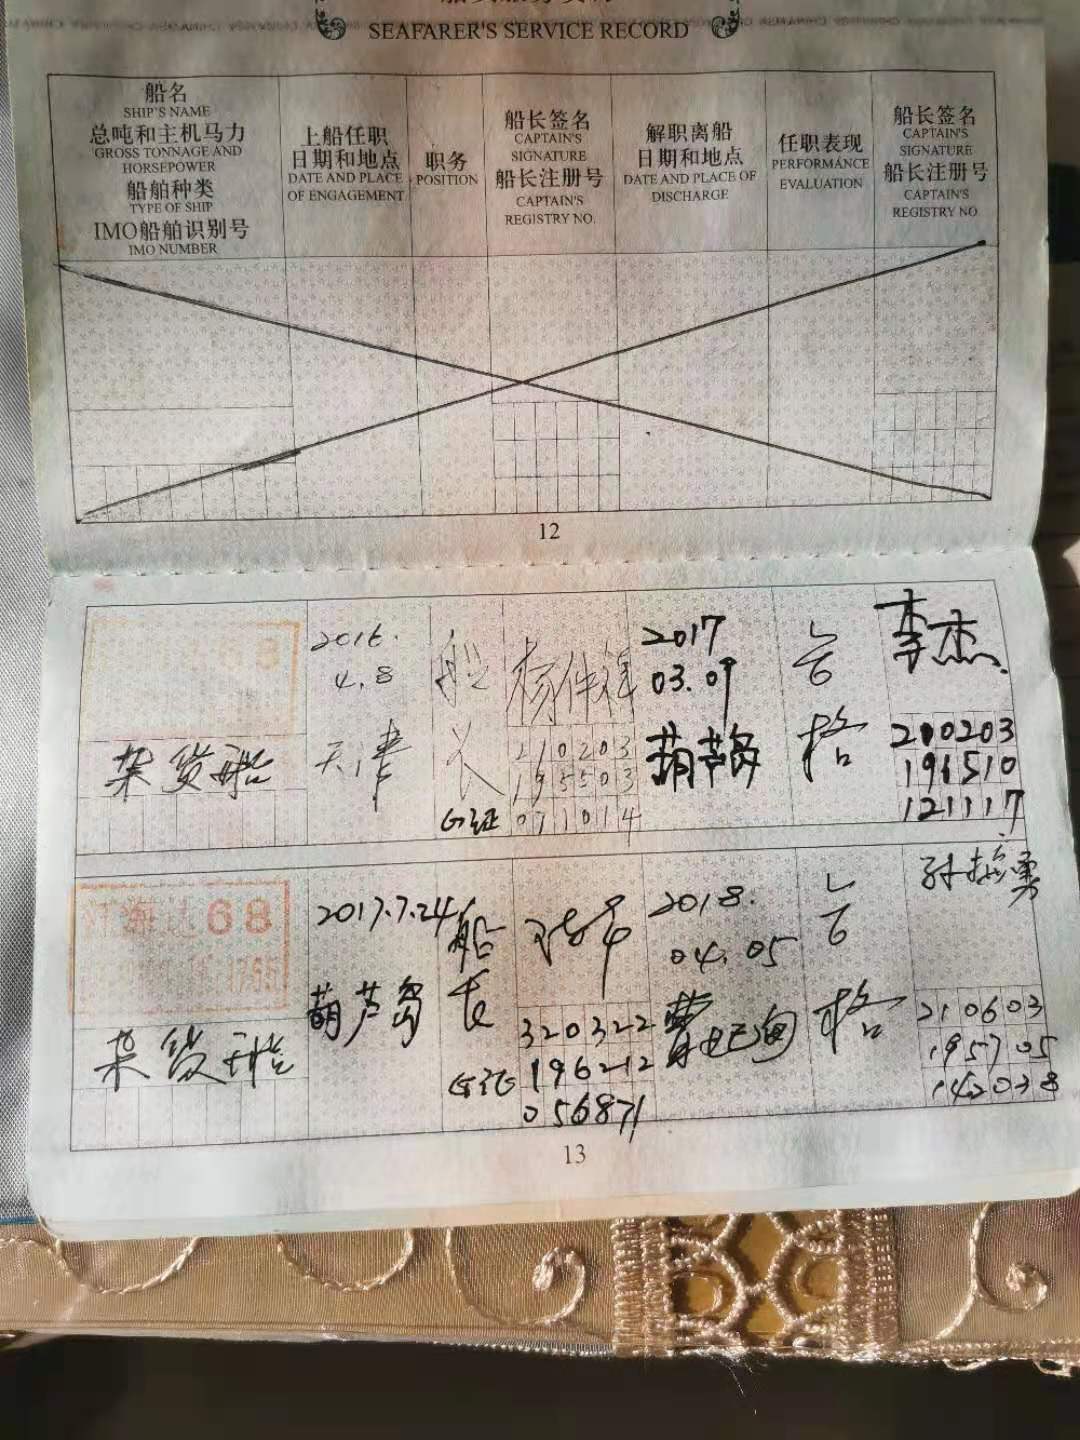 SEAFARER'S SERVICE RECORD
船名
SHIP'S NAME
总吨和主机马力
GROSS TONNAGE AND
HORSEPOWER
船舶种类
TYPE OF SHIP
IMO船舶识别号
IMO NUMBER
上船任职
日期和地点
DATE AND PLACE
OF ENGAGEMENT
职务
POSITION
船长签名
CAPTAIN'S
SIGNATURE
船长注册号
CAPTAIN'S
REGISTRY NO.
解职离船
日期和地点
DATE AND PLACE OF
DISCHARGE
任职表现
PERFORMANCE
EVALUATION
船长签名
CAPTAIN'S
SIGNATURE
船长注册号
CAPTAIN'S
REGISTRY NO.
12
8
杂货船
2016.
4.8
天津
船
长
G证
210203
195503
071014
2017
03.09
葫芦岛
合
格
李杰
210203
196510
121117
江海达68
杂货船
2017.7.24
葫芦岛
船
长
G证
320322
196212
056871
2018.
04.05
曹妃甸
合
格
孙振勇
210603
195705
142038
13